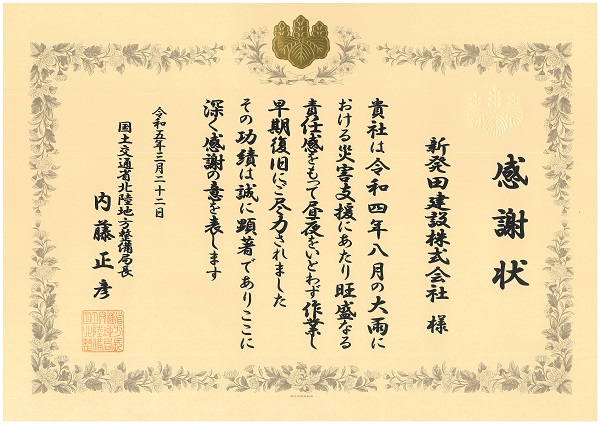 感謝状
新発田建設株式会社 様
貴社は令和四年八月の大雨に
おける災害支援にあたり旺盛なる
責任感をもって昼夜をいとわず作業し
早期復旧にご尽力されました
その功績は誠に顕著でありここに
深く感謝の意を表します
令和五年三月二十二日
国土交通省北陸地方整備局長
内藤正彦